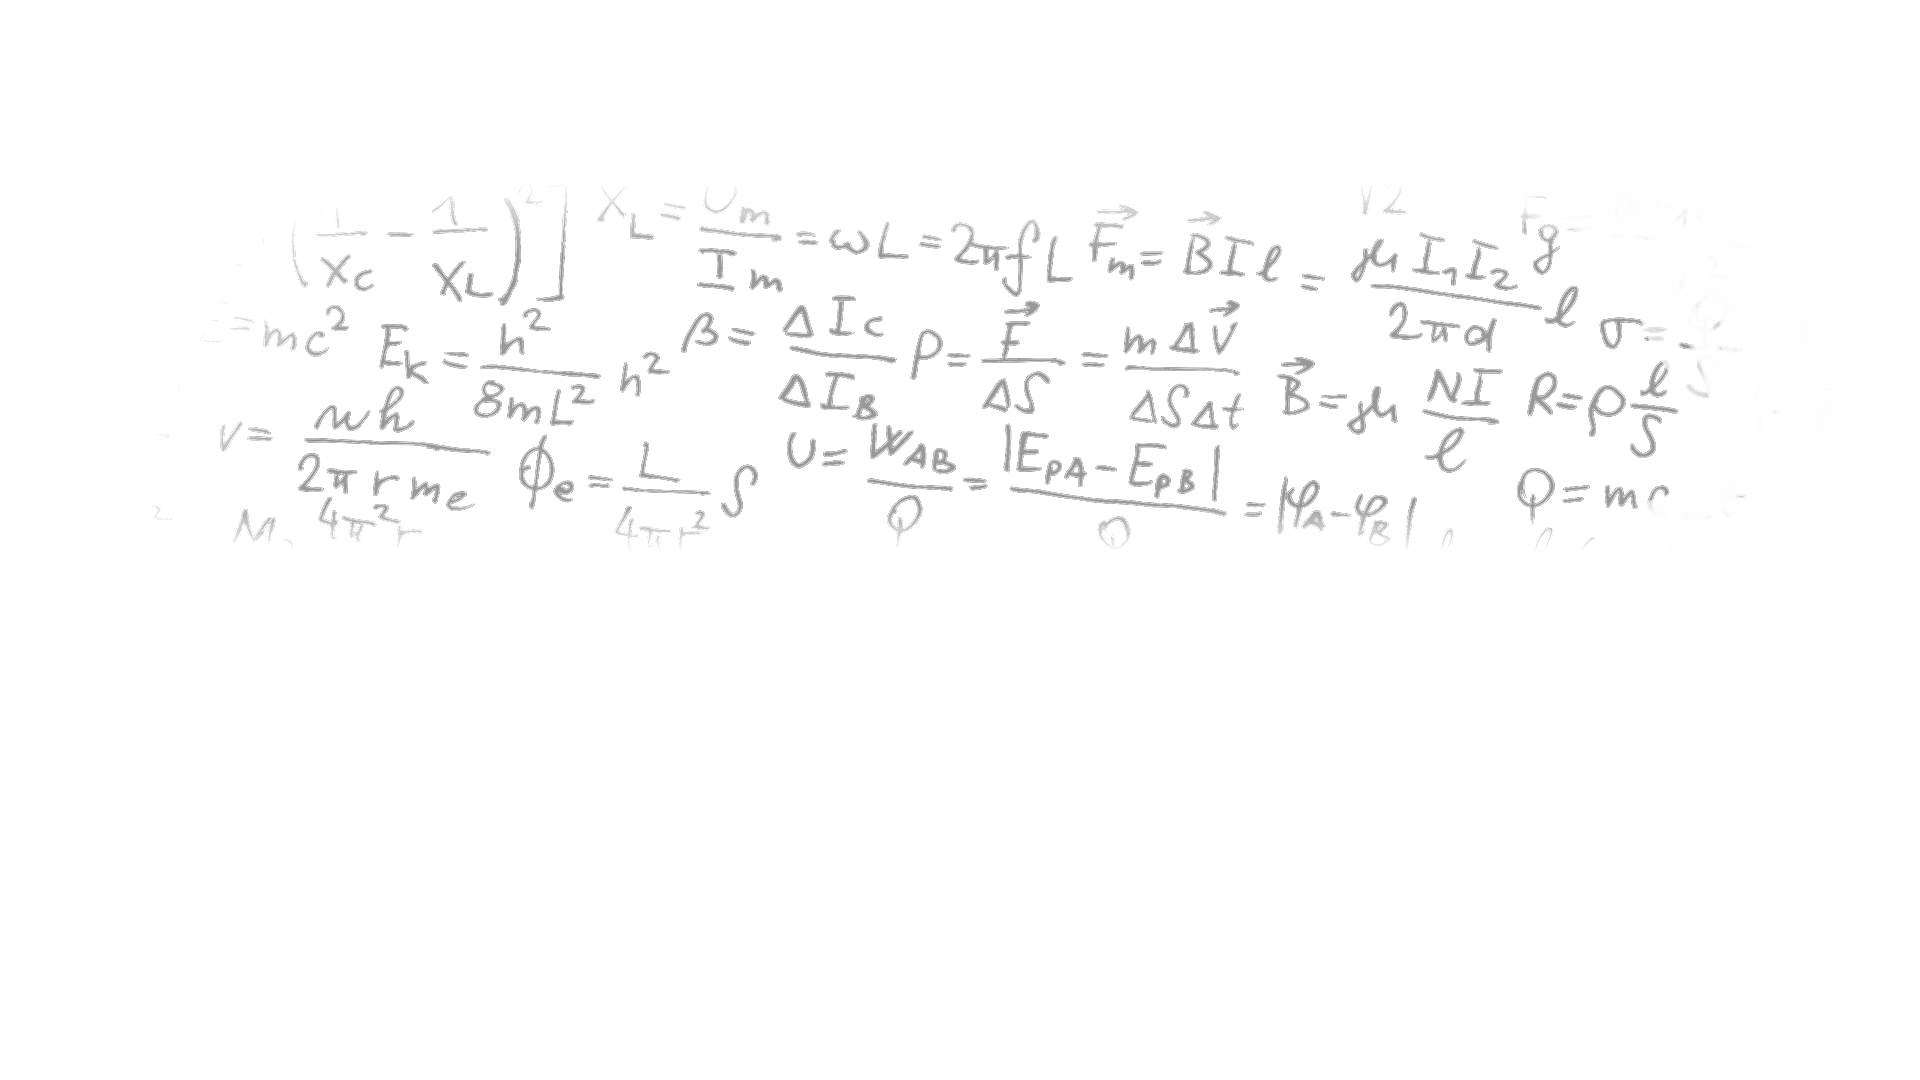 (1/X_C − 1/X_L)²] X_L = U_m/I_m = ωL = 2πfL F⃗_m = B⃗Iℓ = μI₁I₂/2πd ℓ F_g =
= mc² E_k = h²/8mL² h² β = ΔI_C/ΔI_B p = F⃗/ΔS = mΔv⃗/ΔSΔt B⃗ = μ NI/ℓ R = ρ ℓ/S σ =
v = nh/2πrm_e ϕ_e = L/4πr² S U = W_AB/Q = |E_pA − E_pB|/Q = |φ_A − φ_B| Q = mc
4π²r